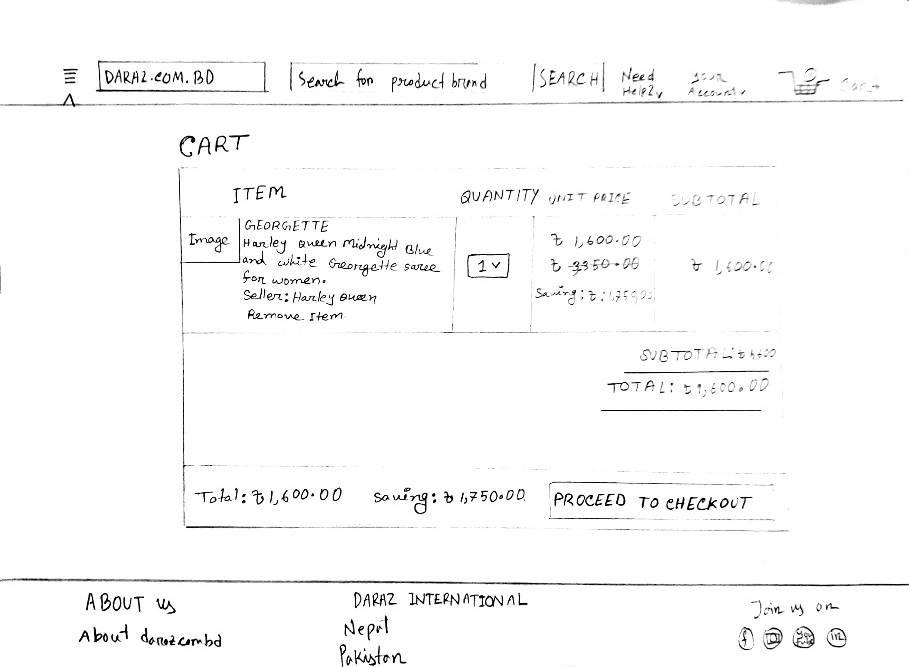 DARAZ.COM.BD
Search for product brand
SEARCH
Need Help?
your Account
Cart
CART
ITEM
QUANTITY
UNIT PRICE
SUBTOTAL
Image
GEORGETTE
Harley Queen Midnight Blue
and white Georgette saree
for women.
Seller: Harley Queen
Remove Item
1
৳ 1,600.00
৳ 3350.00
Saving: ৳:
৳ 1,600.00
SUBTOTAL: ৳ 1,600
TOTAL: ৳ 1,600.00
Total: ৳ 1,600.00
Saving: ৳ 1,750.00
PROCEED TO CHECKOUT
ABOUT us
About daraz.com.bd
DARAZ INTERNATIONAL
Pakistan
Join us on
f
in